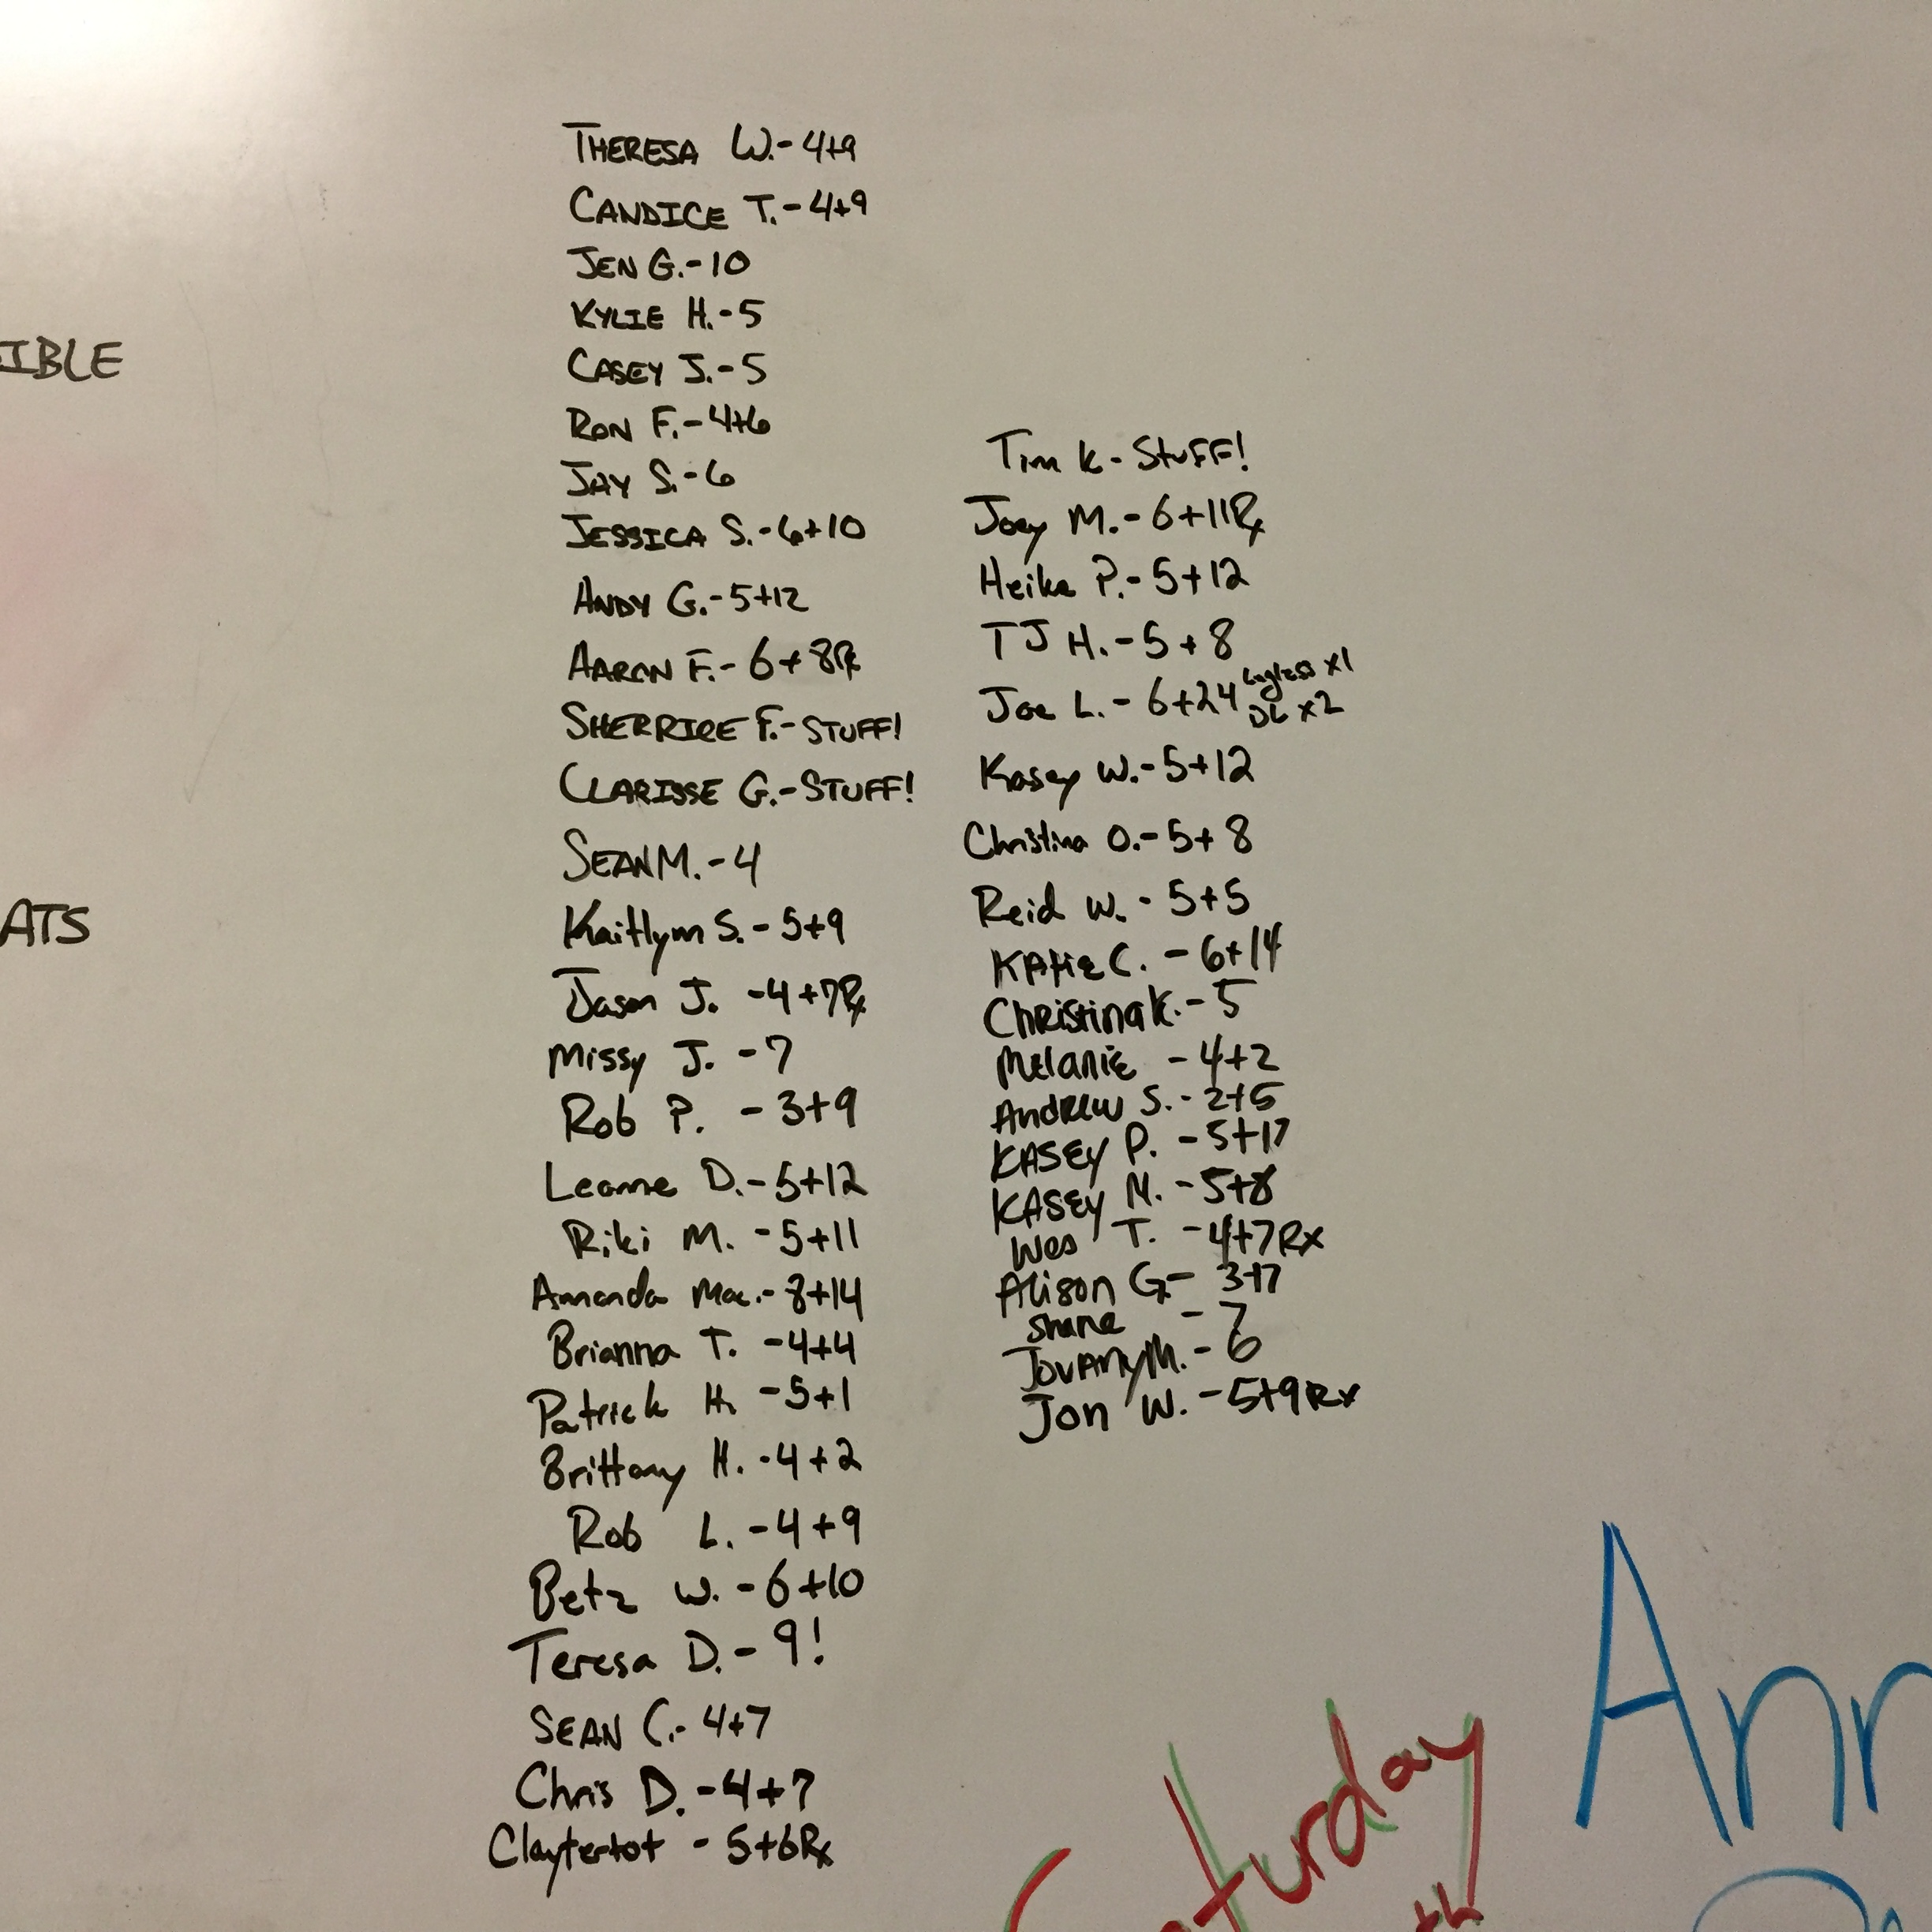 IBLE
ATS
THERESA W.- 4+9
CANDICE T.- 4+9
JEN G.- 10
KYLIE H.- 5
CASEY J.- 5
RON F.- 4+6
JAY S.- 6
JESSICA S.- 6+10
ANDY G.- 5+12
AARON F.- 6+8Rx
SHERRIRE F.- STUFF!
CLARISSE G.- STUFF!
SEAN M. - 4
Kaitlynn S. - 5+9
Jason J. - 4+7Rx
Missy J. - 7
Rob P. - 3+9
Leanne D. - 5+12
Riki M. - 5+11
Amanda Mac. - 8+14
Brianna T. - 4+4
Patrick H. - 5+1
Brittany H. - 4+2
Rob L. - 4+9
Betz W. - 6+10
Teresa D. - 9!
SEAN C. - 4+7
Chris D. - 4+7
Claytertot - 5+6Rx
Tim K - Stuff!
Joey M. - 6+11Rx
Heike P. - 5+12
TJ H. - 5+8
Joe L. - 6+24 Legless x1
DL x2
Kasey W. - 5+12
Christina O. - 5+8
Reid W. - 5+5
Katie C. - 6+14
Christina K. - 5
Melanie - 4+2
Andrew S. - 2+5
KASEY P. - 5+17
KASEY M. - 5+8
Wes T. - 4+7Rx
Alison G - 3+17
Shane - 7
Jovany M. - 6
Jon W. - 5+9Rx
Saturday
th
Ann